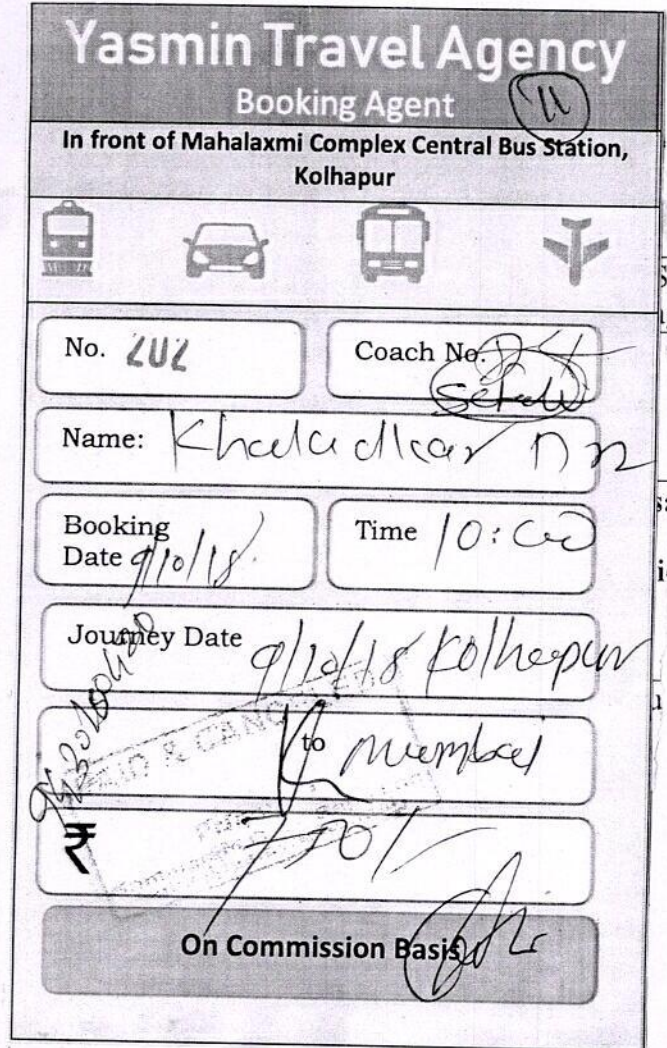 Yasmin Travel Agency
Booking Agent
11
In front of Mahalaxmi Complex Central Bus Station,
Kolhapur
No. 202
Coach No.
Name: Khaladkar
Booking
Date 9/10/18
Time 10:00
Journey Date 9/10/18 Kolhapur
to Mumbai
PAID & CANCELLED
₹
On Commission Basis